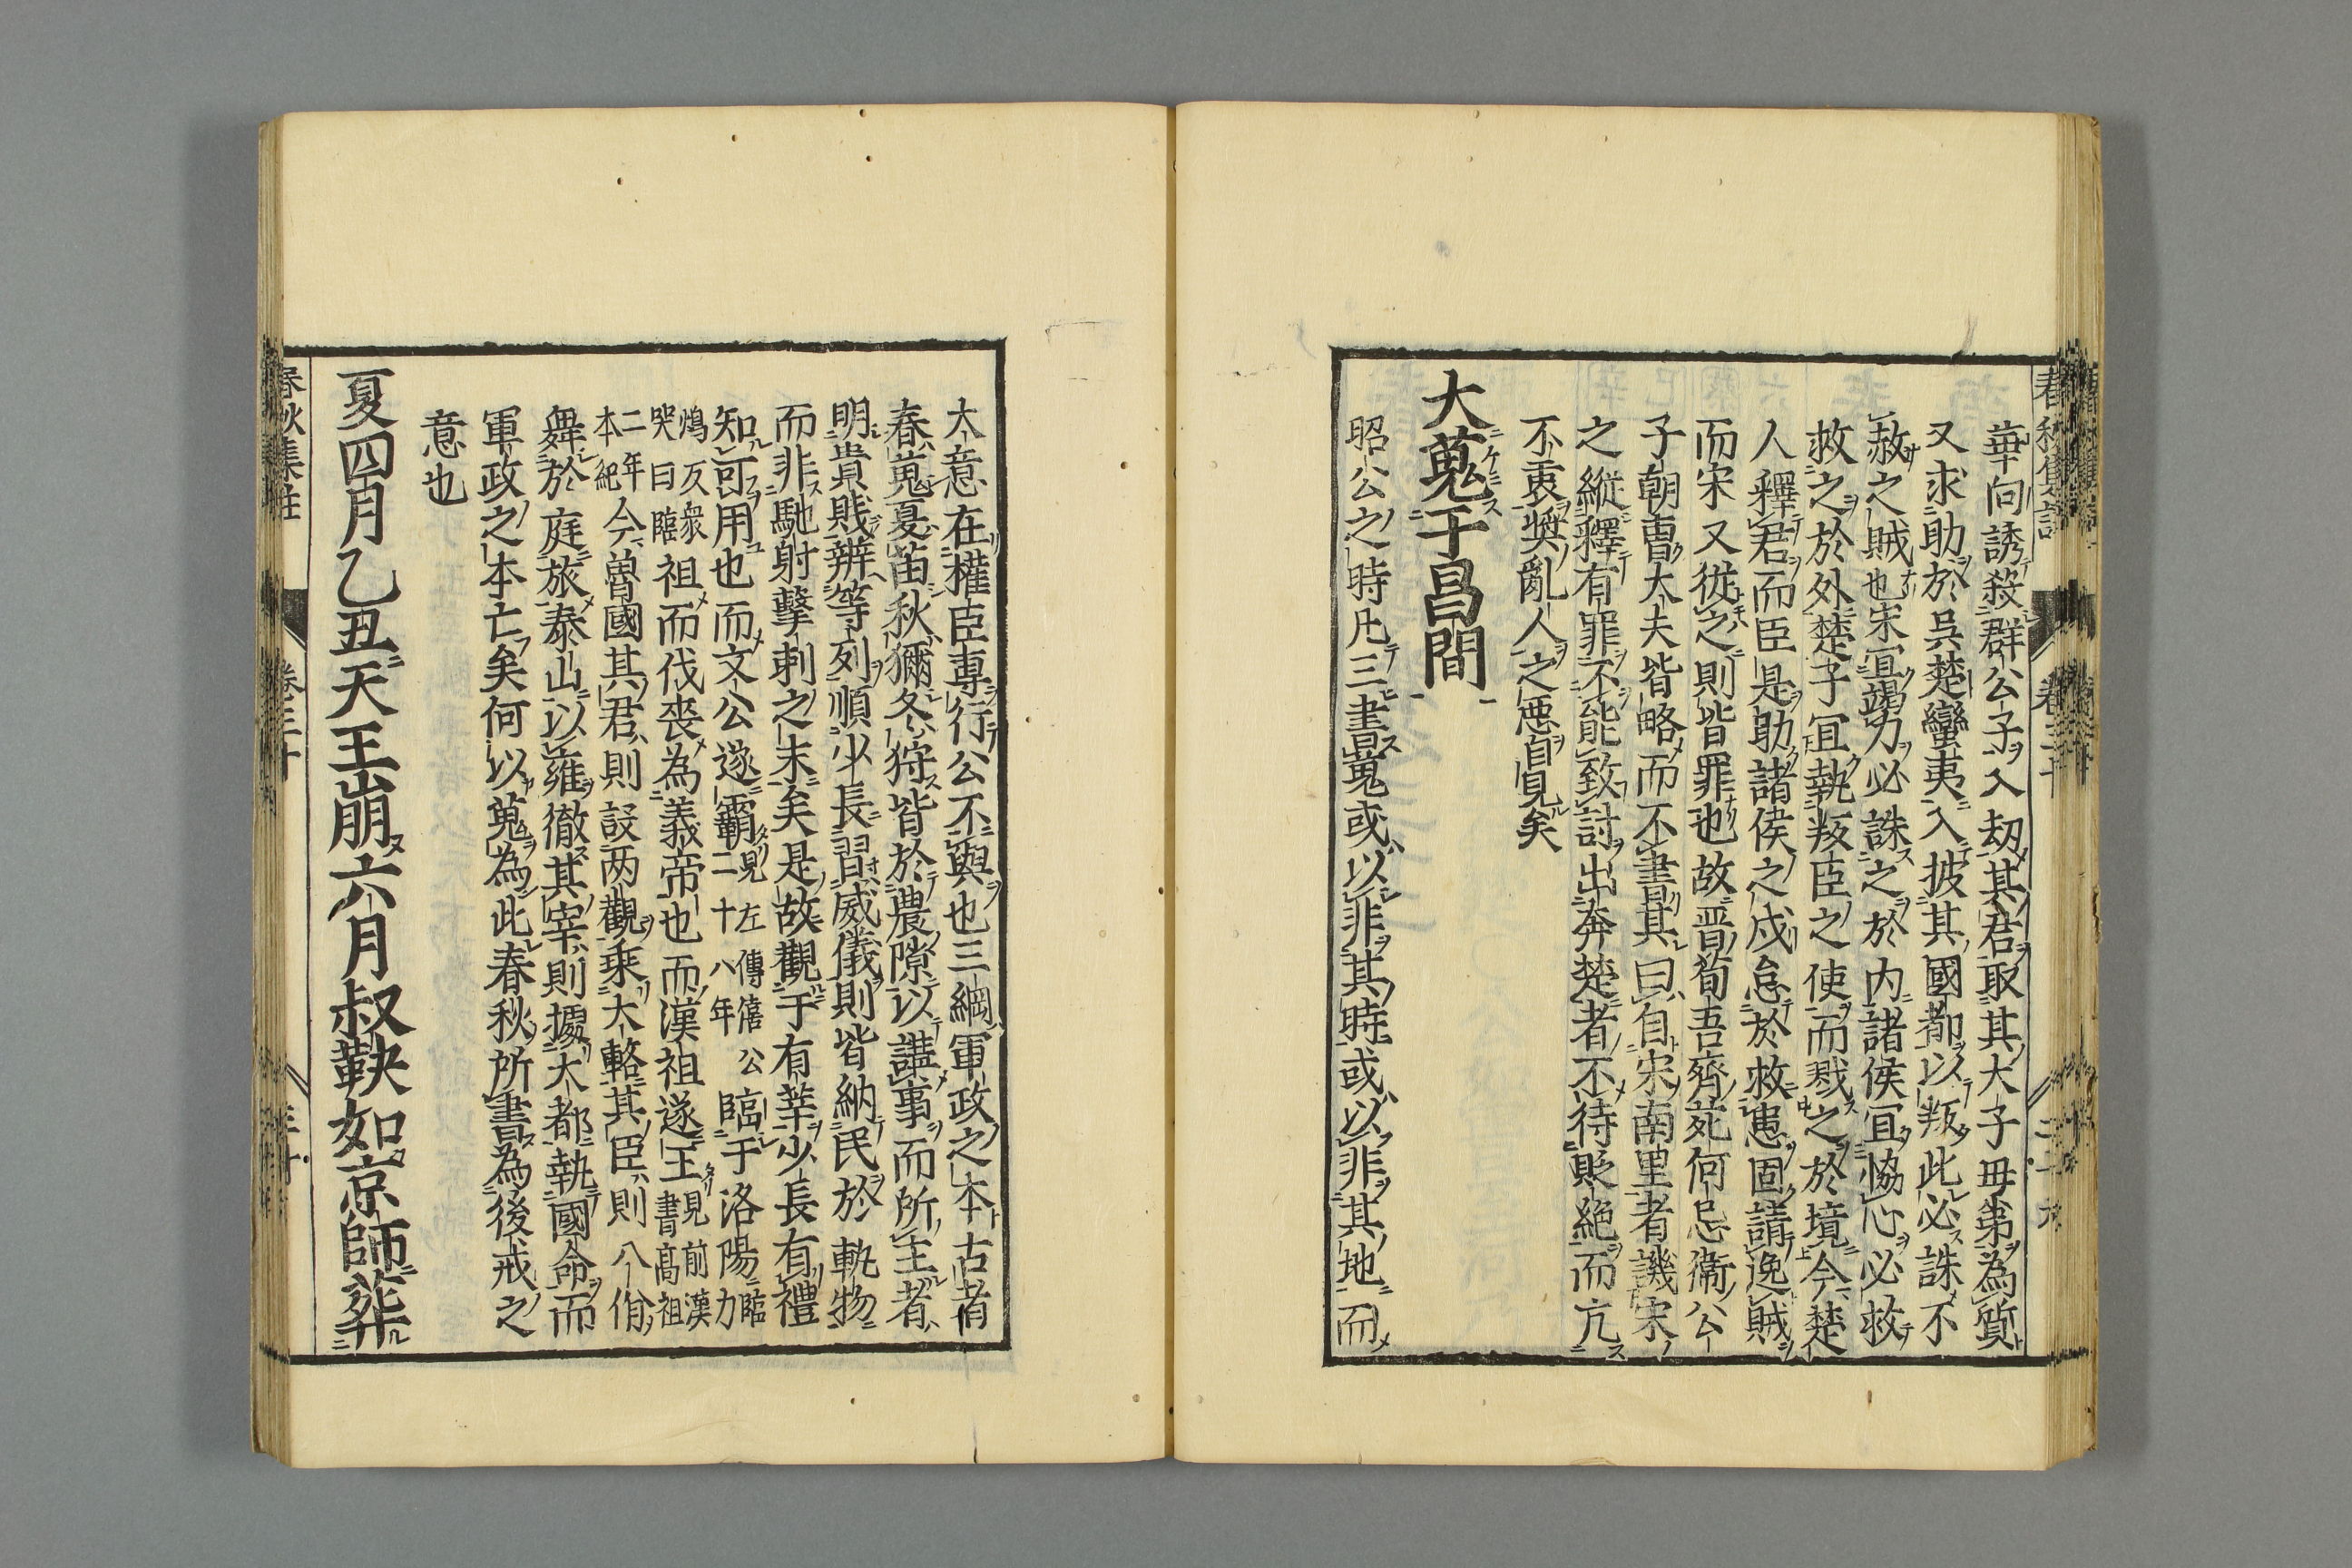 華向誘殺群公子入劫其君取其大子毋弟為質
又求助於呉楚蠻夷入披其國都以叛此必誅不
赦之賊也宋冝竭力必誅之於内諸侯冝恊心必救
救之於外楚子冝執叛臣之使而戮之於境今楚
人釋君而臣是助諸侯之戍怠於救患固請逸賊
而宋又從之則皆罪也故晋荀吾齊苑何忌衞公
子朝曹大夫皆略而不書其曰自宋南里者譏宋
之縦釋有罪不能致討出奔楚者不待貶絶而亢
不衷奬亂人之惡自見矣
大蒐于昌間
昭公之時凡三書蒐或以非其時或以非其地而
大意在權臣専行公不與也三綱軍政之本古者
春蒐夏苗秋獮冬狩皆於農隙以講事而所主者
明貴賎辨等列順少長習威儀則皆納民於軌物
而非馳射擊刺之末矣是故觀于有莘少長有禮
知可用也而文公遂霸見左傳僖公二十八年臨于洛陽臨力
鴆反衆哭曰臨祖而伐喪為義帝也而漢祖遂王見前漢書髙祖
二年本紀今魯國其君則設两觀乗大輅其臣則八佾
舞於庭旅泰山以雍徹其宰則據大都執國命而
軍政之本亡矣何以蒐為此春秋所書為後戒之
意也
夏四月乙丑天王崩六月叔鞅如京師葬
春秋集註
卷三十